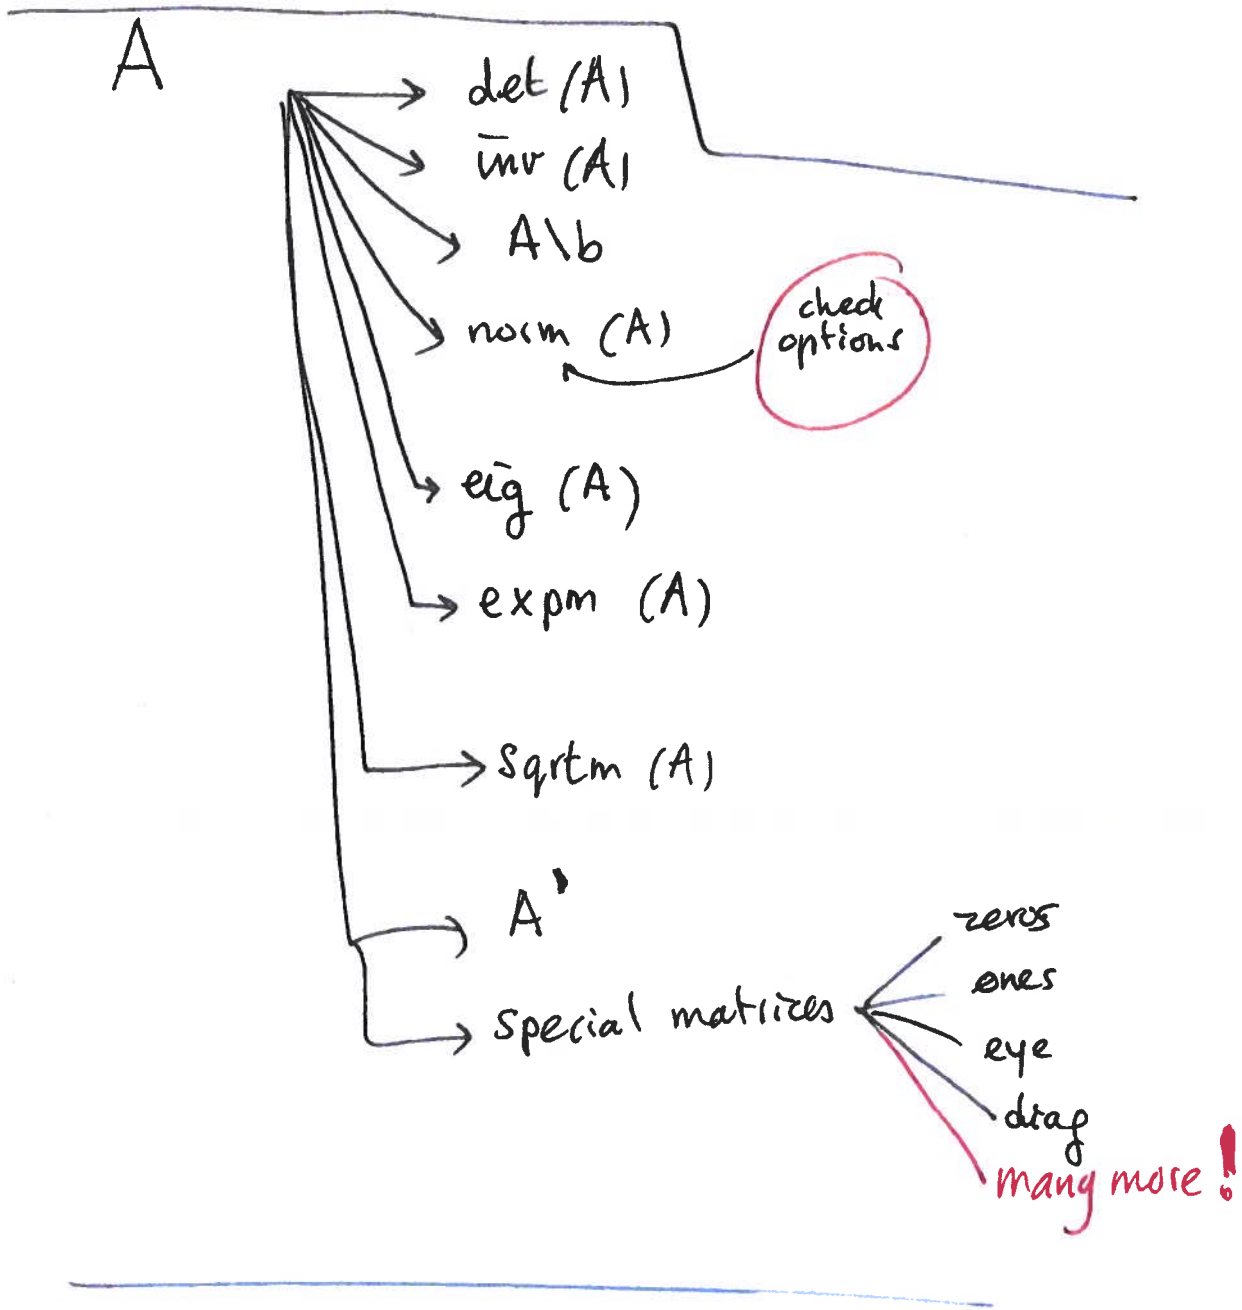 A
det (A)
inv (A)
A\b
norm (A)
check
options
eig (A)
expm (A)
sqrtm (A)
A'
special matrices
zeros
ones
eye
diag
many more!